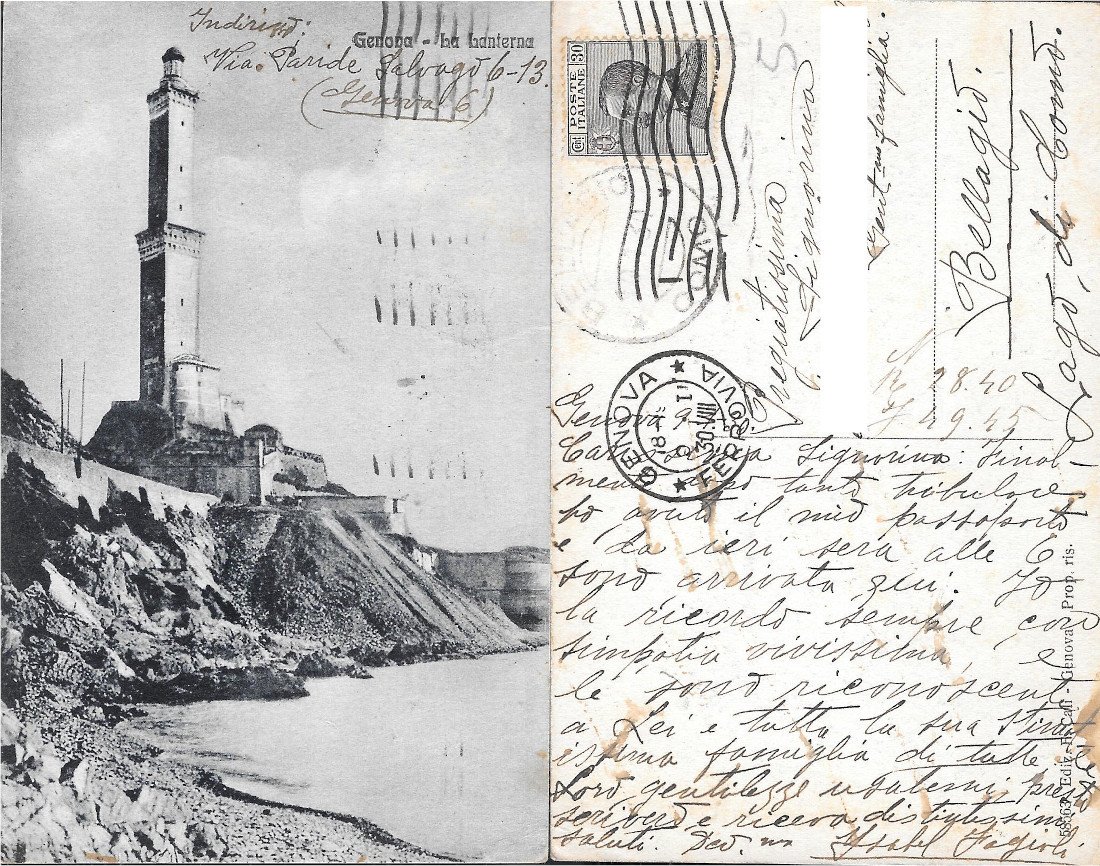 Indirizzo:
Genova - La Lanterna
Via Paride Salvago 6-13
(Genova 6)
POSTE ITALIANE
Cent 30
Pregiatissima
Signorina
e famiglia.
Bellagio.
Lago di Como.
GENOVA
FERROVIA
18-19
30.VIII
N
R 28.40
7 49.45
Genova
Carissima Signorina: Final-
mente dopo tanto tribulare
ho avuto il mio passaporto
e da ieri sera alle 6
sono arrivata qui. Io
la ricordo sempre con
simpatia vivissima, e
le sono riconoscente
a Lei e tutta la sua stimat
issima famiglia di tutte le
Loro gentilezze usatemi, presto
scriverò e riceva distintissimi
saluti. Dev.ma Ysabel Fagioli
Ediz. - Genova - Prop. ris.